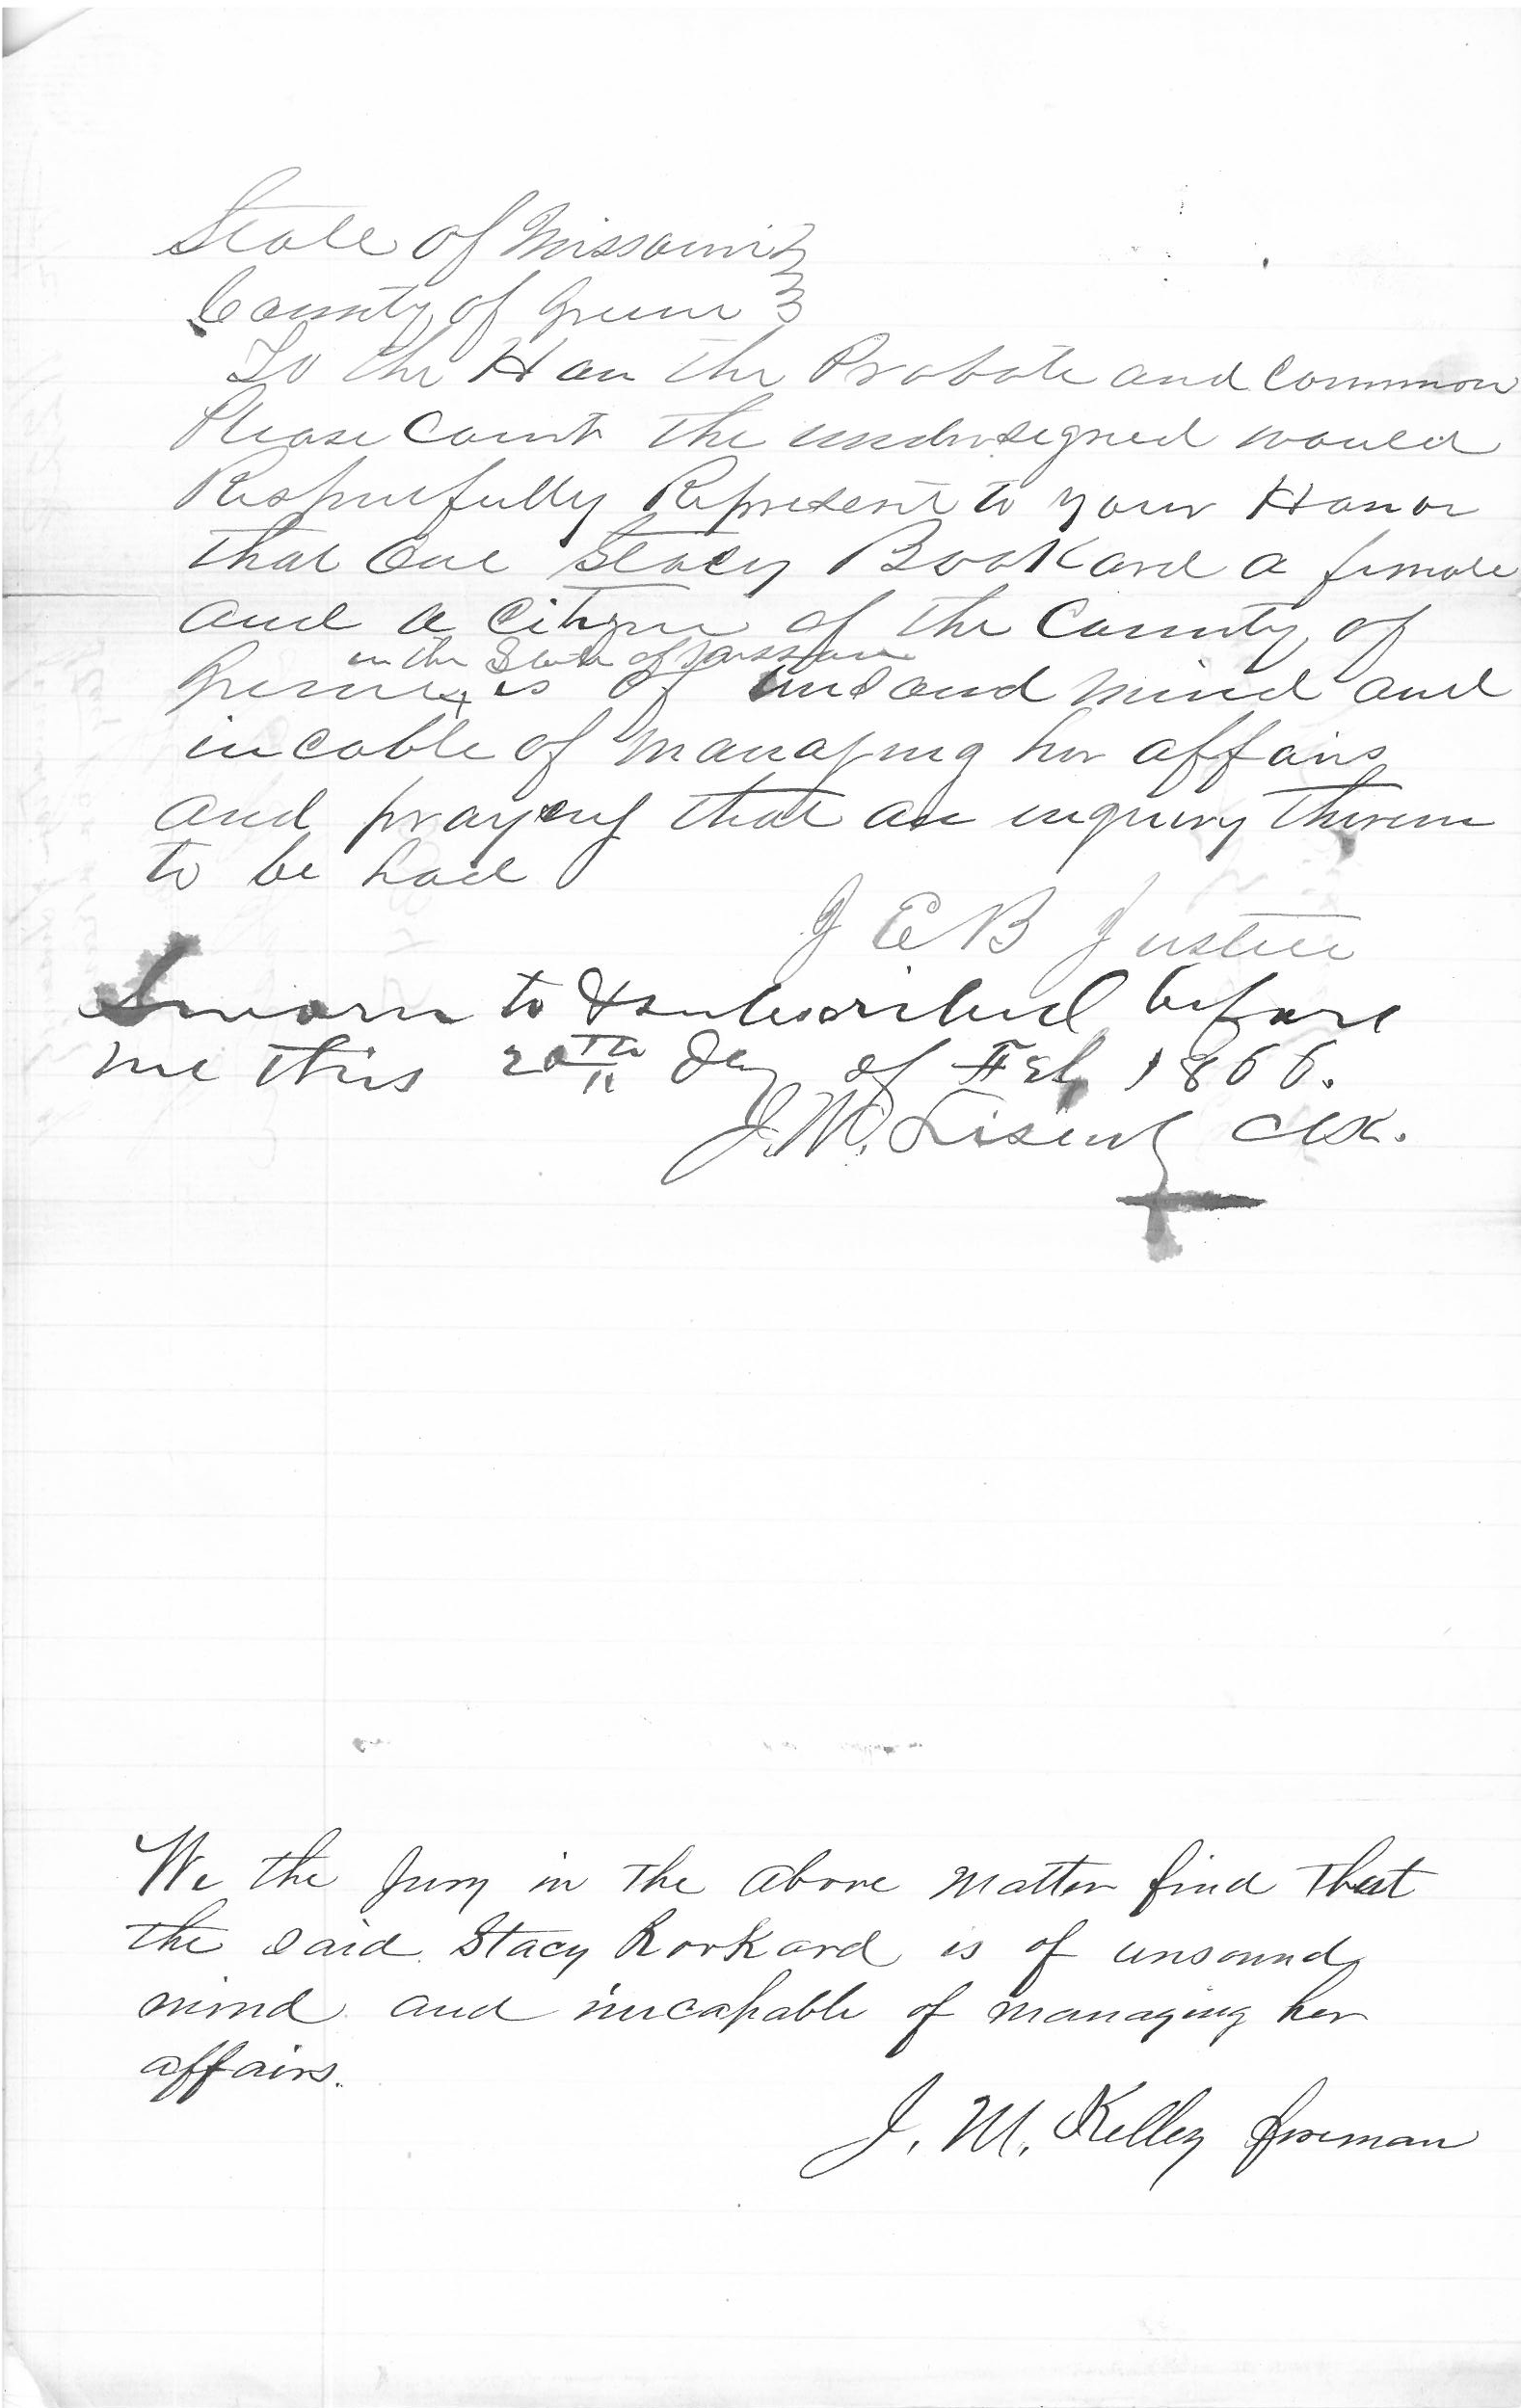 State of Missouri
County of Green
To the Hon the Probate and Common
Please Court the undersigned would
Respectfully Represent to your Honor
that one Stacy Bookard a female
and a citizen of the County of
in the State of Missouri
Greene x is of unsound mind and
incable of managing her affairs
and praying that an inquiry therein
to be had
J E B Justice
Sworn to & subscribed before
me this 20th day of Feb 1866.
J. M. Clk.
We the Jury in the above matter find that
the said Stacy Rookard is of unsound
mind and incapable of managing her
affairs.
J. M. Kelley foreman